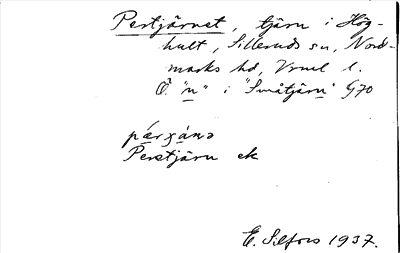 Pestjärnet, tjärn i Hög-
hult, Silleruds sn, Nord-
marks hd, Vrml l.
Ö. "n" i "Småtjärn" G70
Perstjärn ek
E. Silfors 1937.